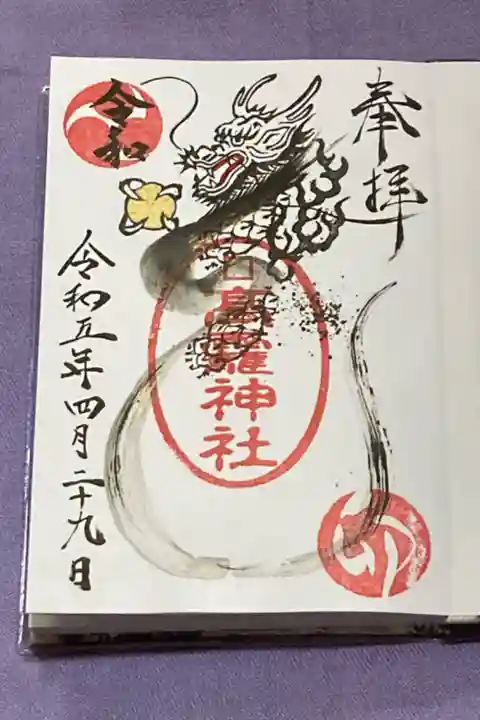 奉拝
神社
令和
令和五年四月二十九日